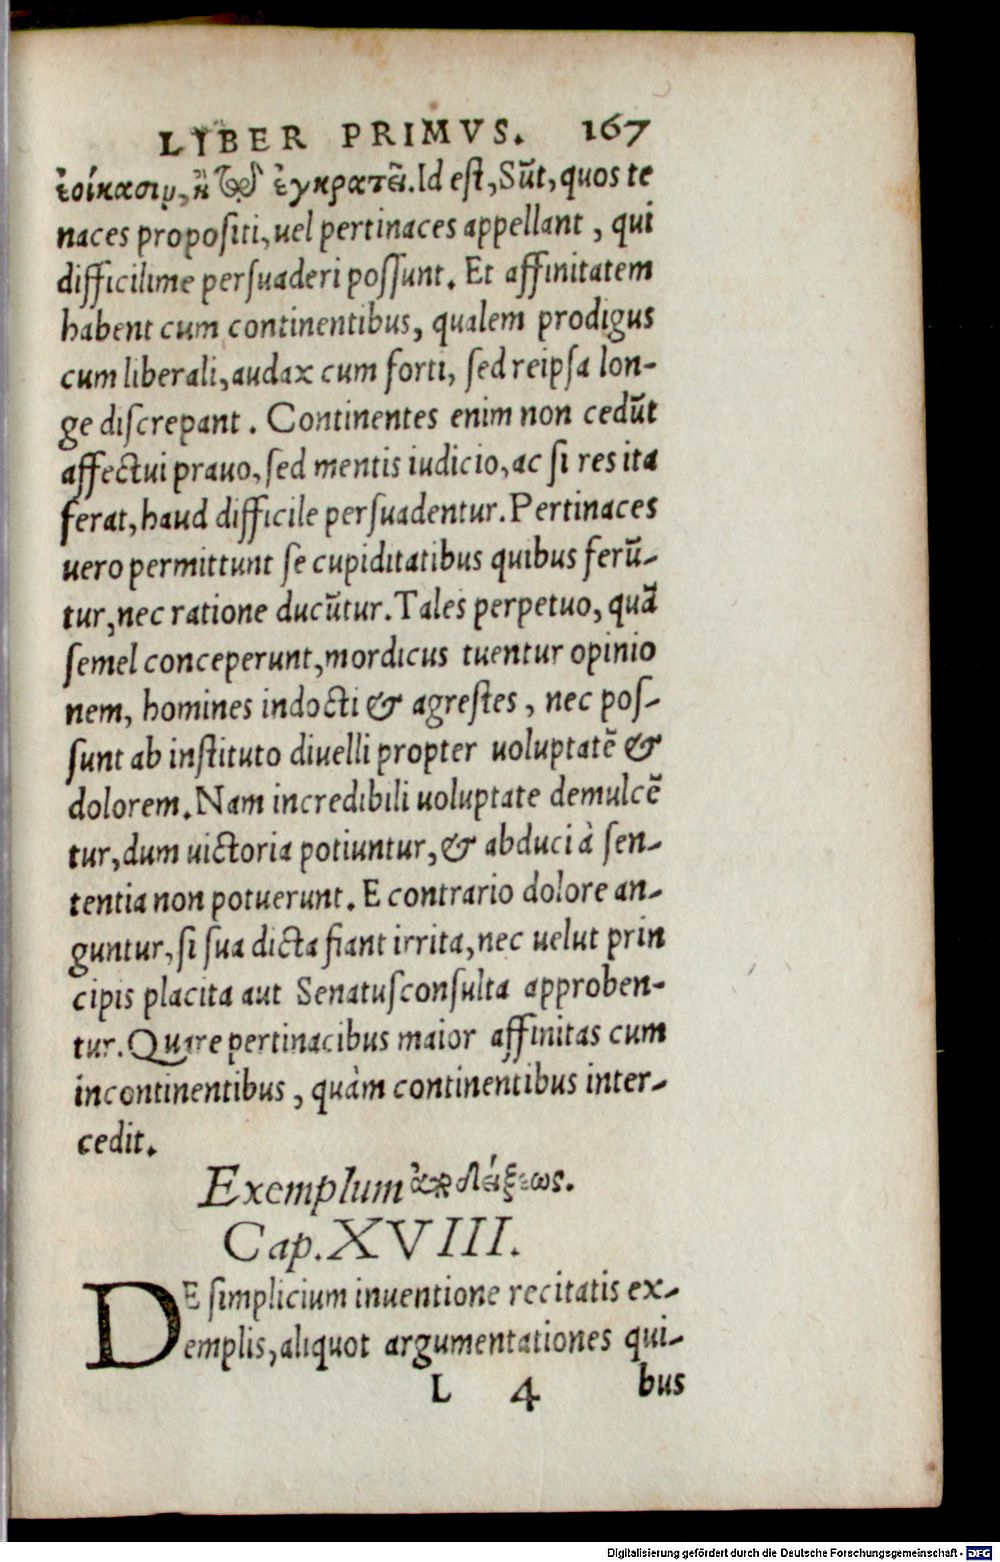 LIBER PRIMVS. 167
ἐοίκασιν, ἢ τῷ ἐγκρατεῖ. Id est, Sūt, quos te
naces propositi, uel pertinaces appellant, qui
difficilime persuaderi possunt. Et affinitatem
habent cum continentibus, qualem prodigus
cum liberali, audax cum forti, sed reipsa lon-
ge discrepant. Continentes enim non cedūt
affectui prauo, sed mentis iudicio, ac si res ita
ferat, haud difficile persuadentur. Pertinaces
uero permittunt se cupiditatibus quibus ferū-
tur, nec ratione ducūtur. Tales perpetuo, quā
semel conceperunt, mordicus tuentur opinio
nem, homines indocti & agrestes, nec pos-
sunt ab instituto diuelli propter uoluptatē &
dolorem. Nam incredibili uoluptate demulcē
tur, dum uictoria potiuntur, & abduci à sen-
tentia non potuerunt. E contrario dolore an-
guntur, si sua dicta fiant irrita, nec uelut prin
cipis placita aut Senatusconsulta approben-
tur. Quare pertinacibus maior affinitas cum
incontinentibus, quàm continentibus inter-
cedit.
Exemplum
Cap. XVIII.
DE simplicium inuentione recitatis ex-
emplis, aliquot argumentationes qui-
L 4 bus
Digitalisierung gefördert durch die Deutsche Forschungsgemeinschaft - DFG